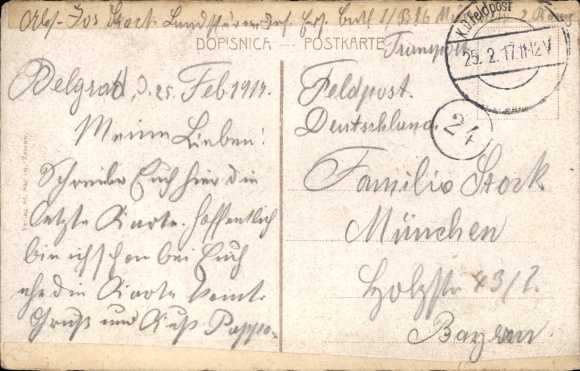 Abs. Jos Stork. Landsturm Inf. Ers. Batl. I/B
DOPISNICA — POSTKARTE
Transport
K.D. Feldpost
25. 2. 17. 11-12 V
24
Belgrad, d. 25. Feb. 1917.
Meine Lieben!
Schreibe Euch hier die
letzte Karte. Hoffentlich
bin ich schon bei Euch
ehe die Karte kommt.
Gruß und Kuß Pappa.
Feldpost.
Deutschland.
Familie Stork
München
Holzstr 43/I.
Bayern.